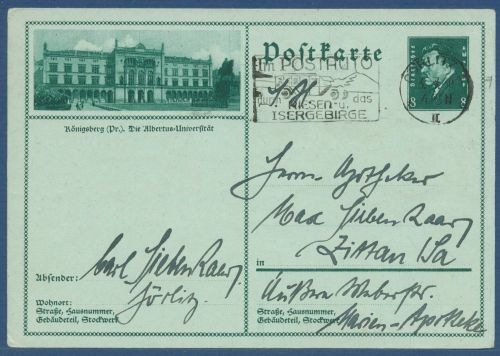 Königsberg (Pr.). Die Albertus-Universität
Postkarte
Im POSTAUTO
durch das
RIESEN- u.
ISERGEBIRGE
DEUTSCHES REICH
8 8
GÖRLITZ
Herrn Apotheker
Max Siebenhaar,
in Zittau i/Sa
Äußere Weberstr.
Marien-Apotheke
Absender: Carl Siebenhaar,
Görlitz
Wohnort:
Straße, Hausnummer,
Gebäudeteil, Stockwerk
Straße, Hausnummer,
Gebäudeteil, Stockwerk